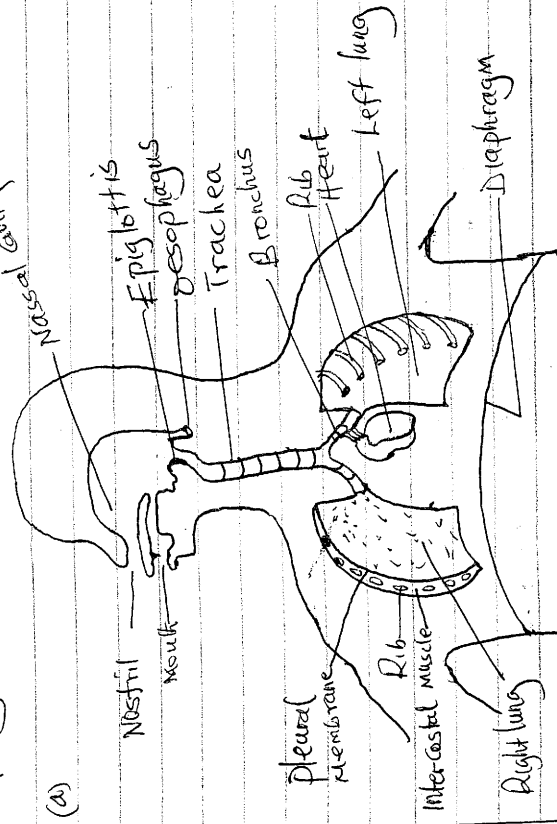 (a)
Nassal
Epiglottis
oesophagus
Trachea
Bronchus
Rib
Heart
Left lung
Diaphragm
Nostril
Mouth
pleural
Membrane
Rib
Intercostal Muscle
Right lung